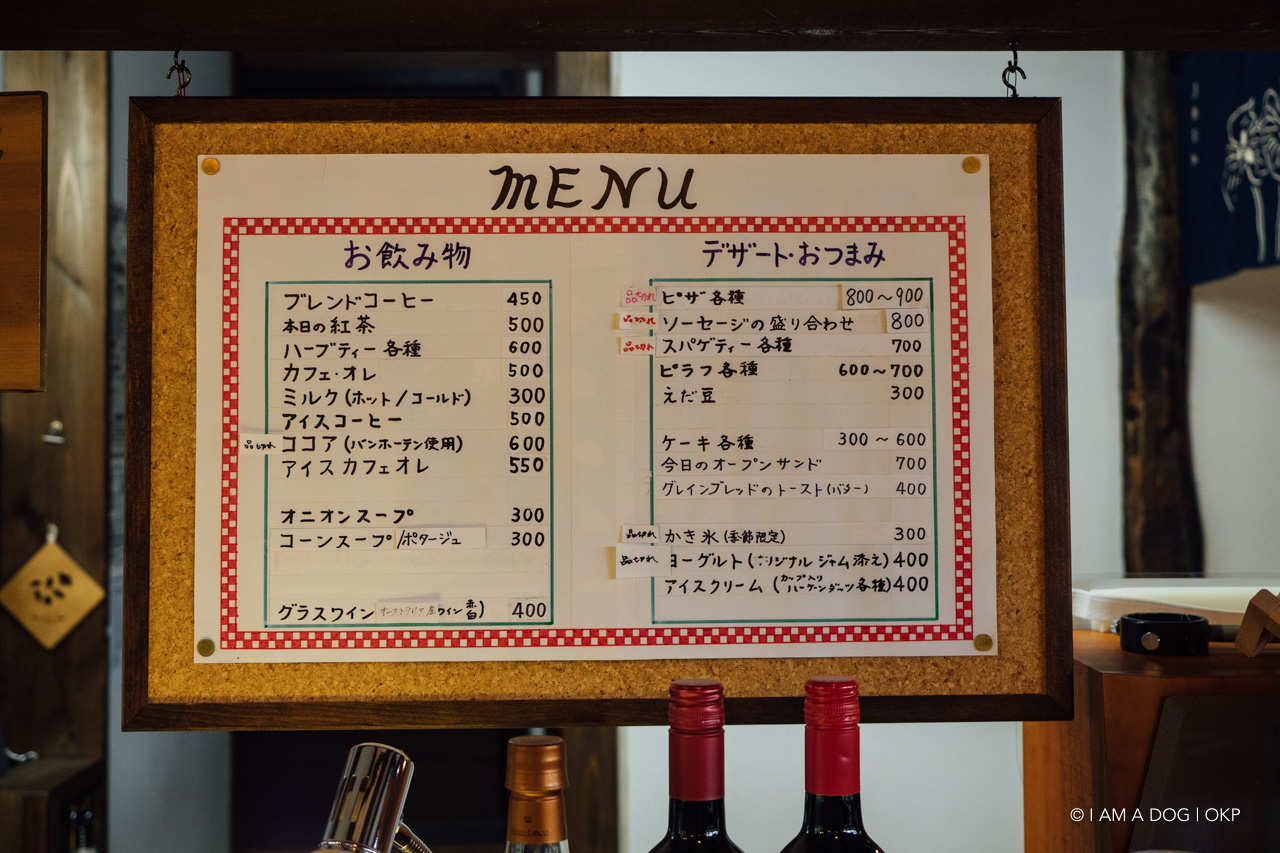 MENU
お飲み物
ブレンドコーヒー 450
本日の紅茶 500
ハーブティー各種 600
カフェ・オレ 500
ミルク(ホット/コールド) 300
アイスコーヒー 500
品切れ ココア(バンホーテン使用) 600
アイスカフェオレ 550
オニオンスープ 300
コーンスープ/ポタージュ 300
グラスワイン オーストラリア産ワイン 赤 白) 400
デザート・おつまみ
品切れ ピザ各種 800〜900
品切れ ソーセージの盛り合わせ 800
品切れ スパゲティー各種 700
ピラフ各種 600〜700
えだ豆 300
ケーキ各種 300〜600
今日のオープンサンド 700
グレインブレッドのトースト(バター) 400
品切れ かき氷(季節限定) 300
品切れ ヨーグルト(オリジナルジャム添え) 400
アイスクリーム(カップ入りハーゲンダッツ各種) 400
© I AM A DOG | OKP